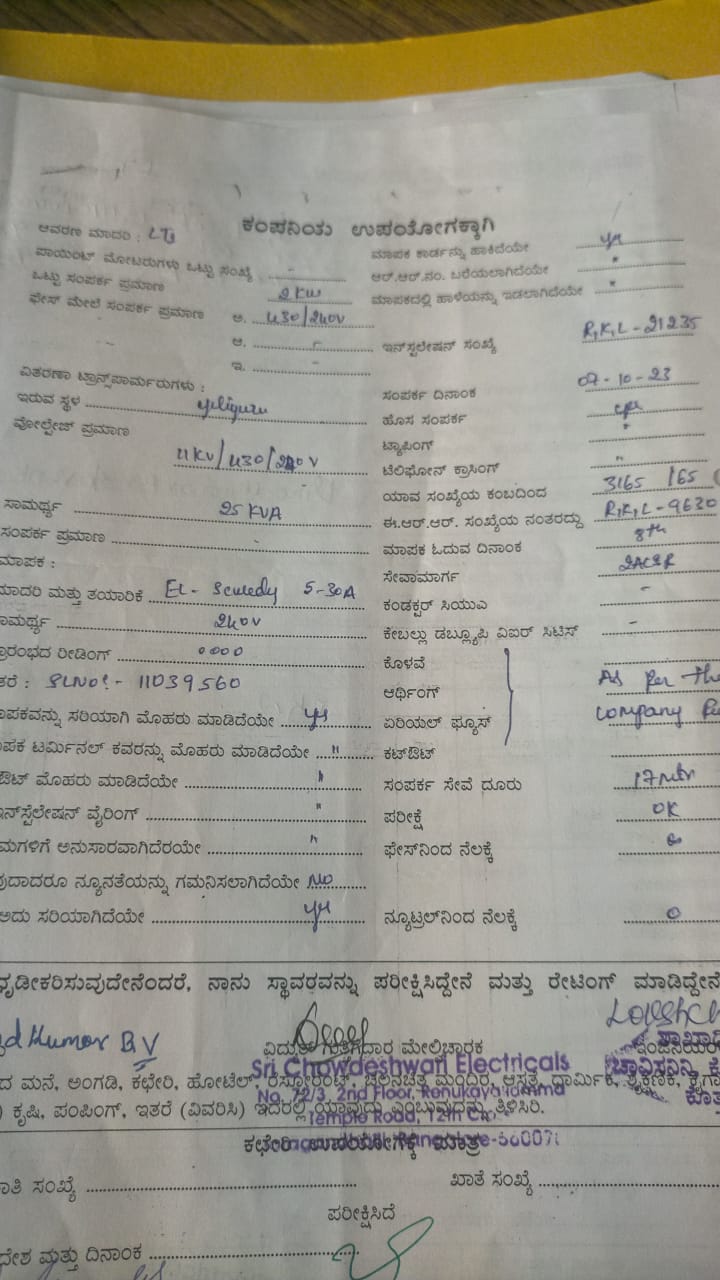 ಕಂಪನಿಯ ಉಪಯೋಗಕ್ಕಾಗಿ
ಆವರಣ ಮಾದರಿ : LT3
ಪಾಯಿಂಟ್ ಮೋಟರುಗಳು ಒಟ್ಟು ಸಂಖ್ಯೆ -
ಒಟ್ಟು ಸಂಪರ್ಕ ಪ್ರಮಾಣ 2 KW
ಫೇಸ್ ಮೇಲೆ ಸಂಪರ್ಕ ಪ್ರಮಾಣ ಅ. 430/240V
ಆ.
ಇ. -
ವಿತರಣಾ ಟ್ರಾನ್ಸ್‌ಪಾರ್ಮರುಗಳು :
ಇರುವ ಸ್ಥಳ
ವೋಲ್ಟೇಜ್ ಪ್ರಮಾಣ
11KV/430/240V
ಸಾಮರ್ಥ್ಯ 25 KVA
ಸಂಪರ್ಕ ಪ್ರಮಾಣ -
ಮಾಪಕ :
ಮಾದರಿ ಮತ್ತು ತಯಾರಿಕೆ 5-30A
ಸಾಮರ್ಥ್ಯ 240V
ಪ್ರಾರಂಭದ ರೀಡಿಂಗ್ 0000
SLNO:- 11039560
ಮಾಪಕವನ್ನು ಸರಿಯಾಗಿ ಮೊಹರು ಮಾಡಿದೆಯೇ yes
ಮಾಪಕ ಟರ್ಮಿನಲ್ ಕವರನ್ನು ಮೊಹರು ಮಾಡಿದೆಯೇ "
ಮೊಹರು ಮಾಡಿದೆಯೇ "
ಇನ್‌ಸ್ಟೆಲೇಷನ್ ವೈರಿಂಗ್ "
ಅನುಸಾರವಾಗಿದೆರಯೇ "
ನ್ಯೂನತೆಯನ್ನು ಗಮನಿಸಲಾಗಿದೆಯೇ NO
ಅದು ಸರಿಯಾಗಿದೆಯೇ yes
ಮಾಪಕ ಕಾರ್ಡನ್ನು ಹಾಕಿದೆಯೇ yes
ಆರ್.ಆರ್.ನಂ. ಬರೆಯಲಾಗಿದೆಯೇ "
ಮಾಪಕದಲ್ಲಿ ಹಾಳೆಯನ್ನು ಇಡಲಾಗಿದೆಯೇ "
ಇನ್‌ಸ್ಟಲೇಷನ್ ಸಂಖ್ಯೆ R,K,L-21235
ಸಂಪರ್ಕ ದಿನಾಂಕ 07-10-23
ಹೊಸ ಸಂಪರ್ಕ yes
ಟ್ಯಾಪಿಂಗ್ "
ಟೆಲಿಫೋನ್ ಕ್ರಾಸಿಂಗ್ "
ಯಾವ ಸಂಖ್ಯೆಯ ಕಂಬದಿಂದ 3165 /65
ಈ.ಆರ್.ಆರ್. ಸಂಖ್ಯೆಯ ನಂತರದ್ದು R,K,L-9630
ಮಾಪಕ ಓದುವ ದಿನಾಂಕ 8th
ಸೇವಾಮಾರ್ಗ 2ACSR
ಕಂಡಕ್ಟರ್ ಸಿಯುಎ -
ಕೇಬಲ್ಲು ಡಬ್ಲ್ಯೂಪಿ ವಿಐರ್ ಸಿಟಿಸ್ -
ಕೊಳವೆ
ಆರ್ಥಿಂಗ್ As per the
ಏರಿಯಲ್ ಫ್ಯೂಸ್ company
ಕಟ್‌ಔಟ್
ಸಂಪರ್ಕ ಸೇವೆ ದೂರು 17mtr
ಪರೀಕ್ಷೆ OK
ಫೇಸ್‌ನಿಂದ ನೆಲಕ್ಕೆ
ನ್ಯೂಟ್ರಲ್‌ನಿಂದ ನೆಲಕ್ಕೆ 0
ಧೃಡೀಕರಿಸುವುದೇನೆಂದರೆ, ನಾನು ಸ್ಥಾವರವನ್ನು ಪರೀಕ್ಷಿಸಿದ್ದೇನೆ ಮತ್ತು ರೇಟಿಂಗ್ ಮಾಡಿದ್ದೇನೆ
Kumar B V
ವಿದ್ಯುತ್ ಗುತ್ತಿಗೆದಾರ ಮೇಲಿಚಾರಕ
Sri Chowdeshwari Electricals
ಮನೆ, ಅಂಗಡಿ, ಕಛೇರಿ, ಹೋಟೆಲ್, ರೆಸ್ಟೋರೆಂಟ್, ಚಲನಚಿತ್ರ ಮಂದಿರ, ಆಸ್ಪತ್ರೆ, ಧಾರ್ಮಿಕ, ಶೈಕ್ಷಣಿಕ,
No. 72/3, 2nd Floor, Renukayallamma
ಕೃಷಿ, ಪಂಪಿಂಗ್, ಇತರೆ (ವಿವರಿಸಿ) ಇದರಲ್ಲಿ ಯಾವುದು ಎಂಬುವುದನ್ನು ತಿಳಿಸಿರಿ.
Temple Road, 12th
ಕಛೇರಿ ಉಪಯೋಗಕ್ಕೆ ಮಾತ್ರ
ಸಂಖ್ಯೆ
ಖಾತೆ ಸಂಖ್ಯೆ
ಪರೀಕ್ಷಿಸಿದೆ
ಮತ್ತು ದಿನಾಂಕ